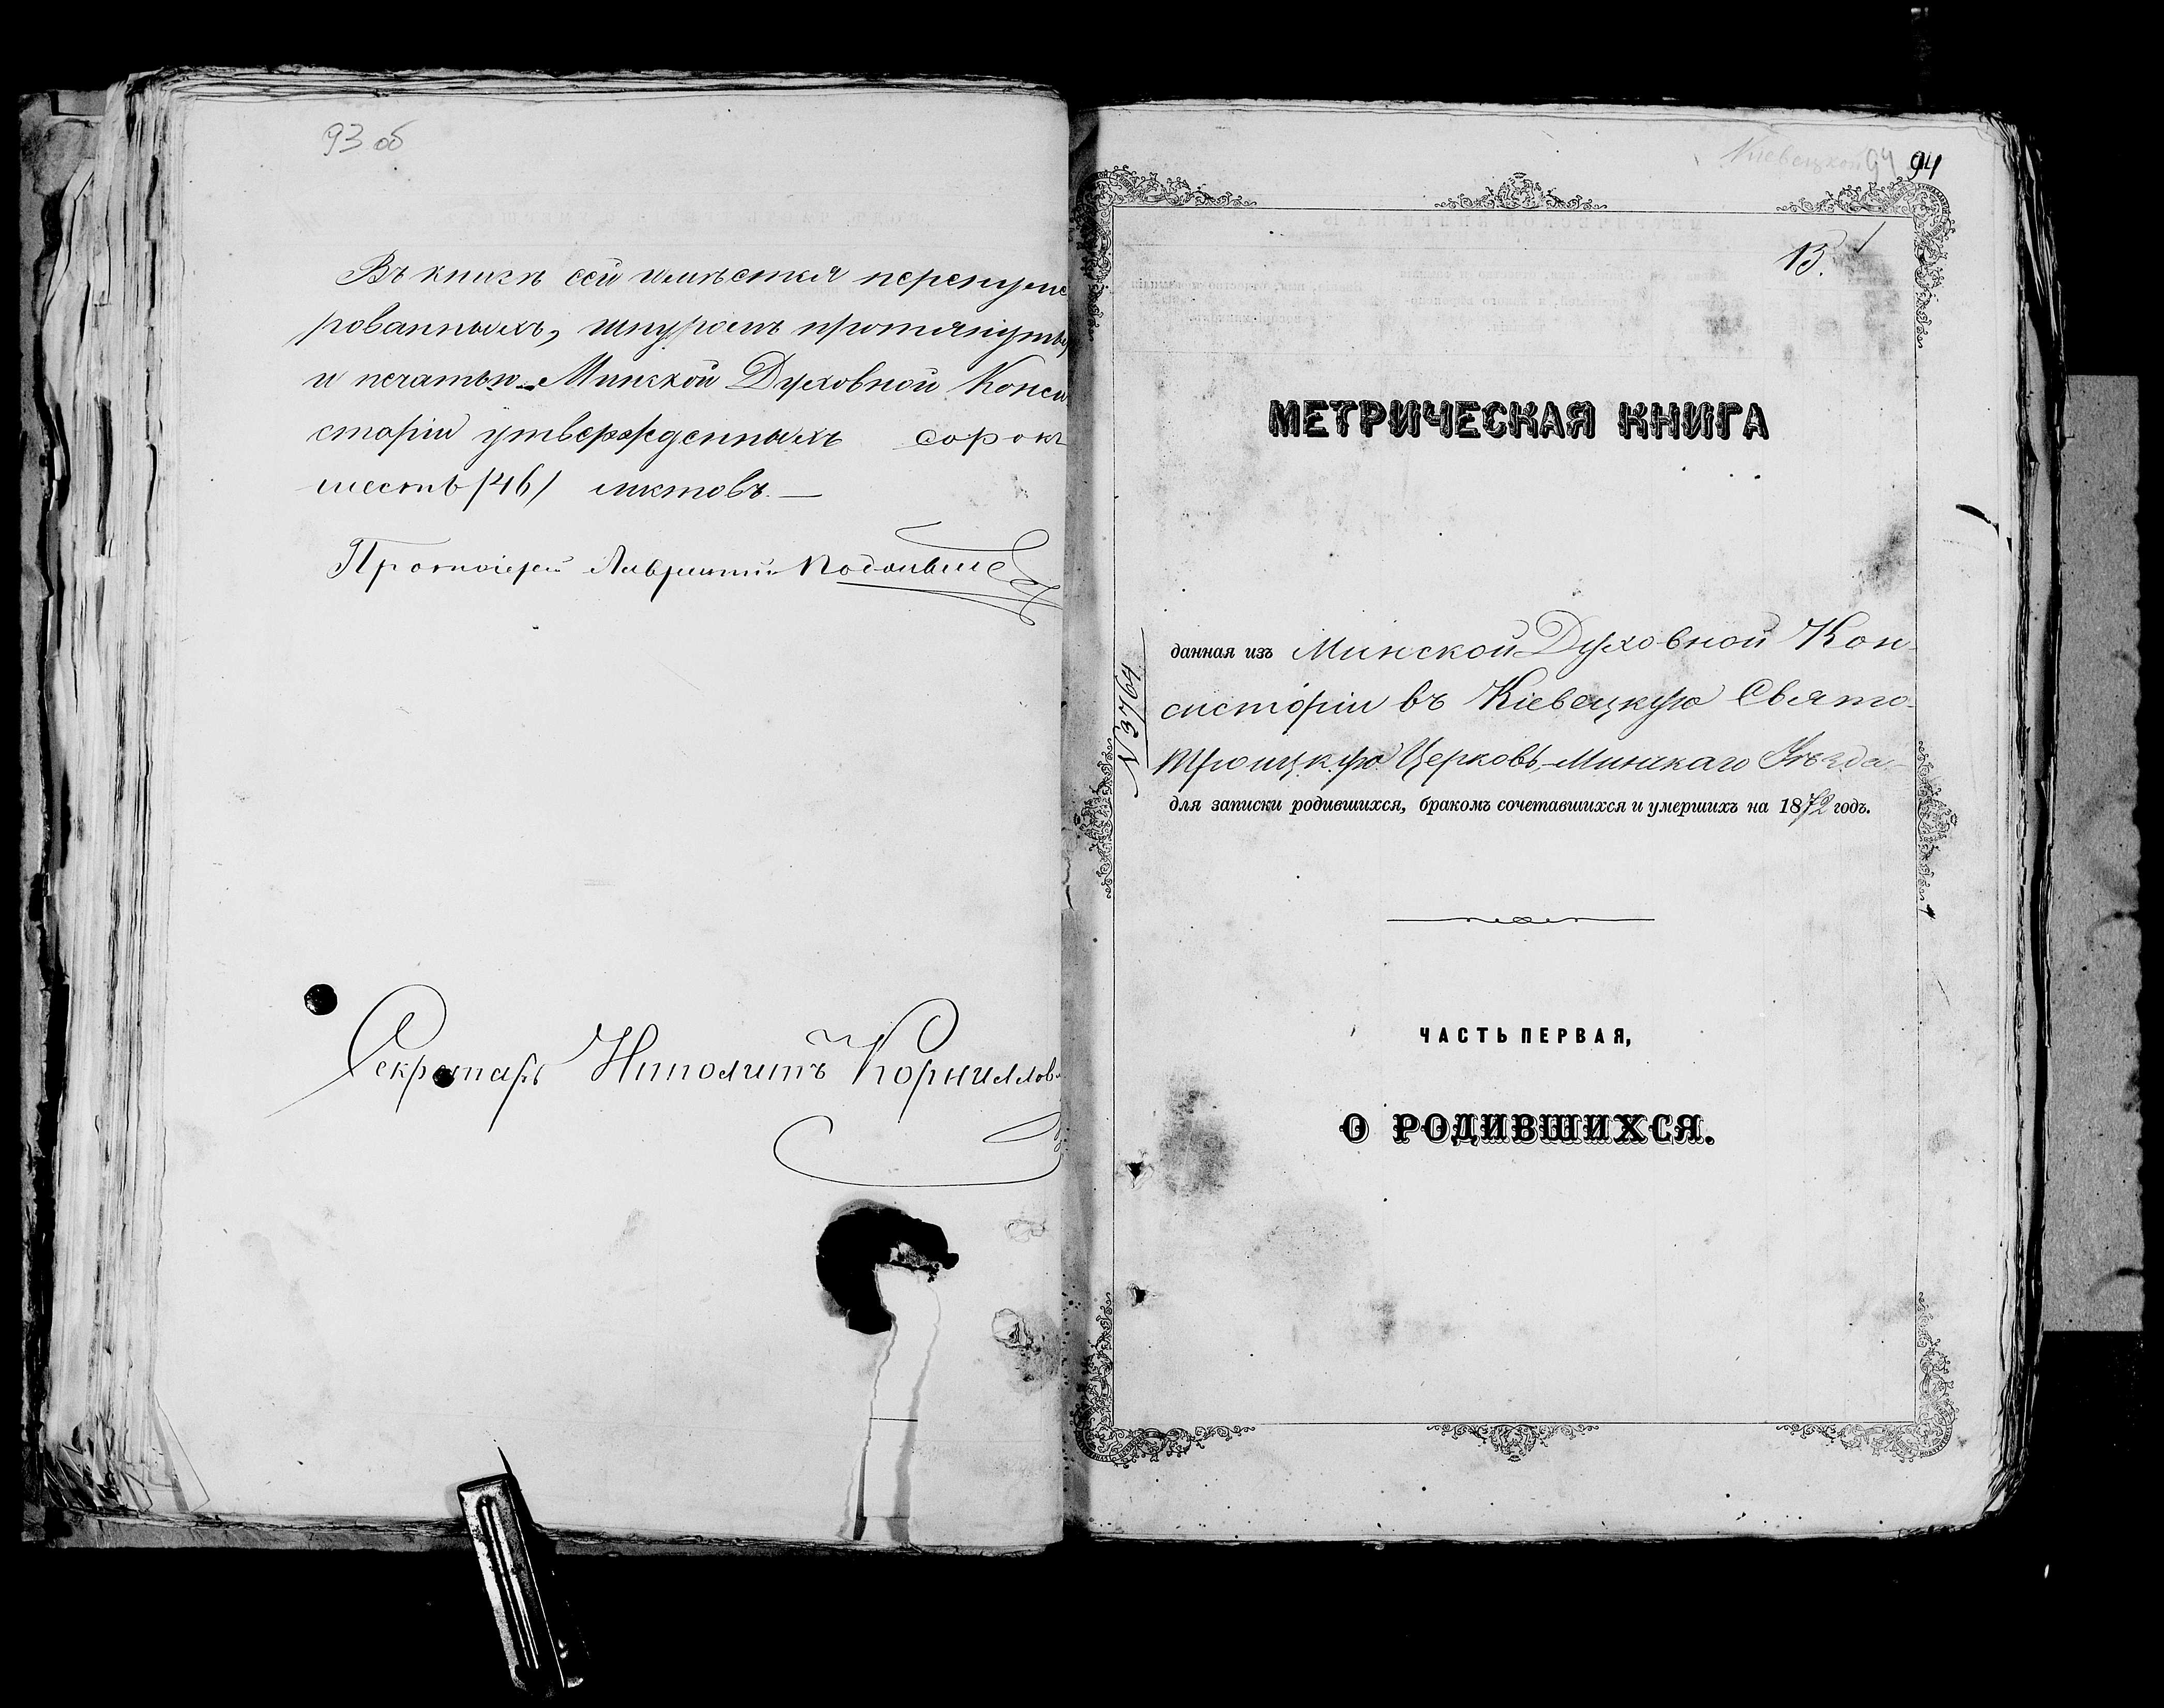 93 об
Въ книгѣ сей имѣется перенуме
рованныхъ, шнуромъ протянуты
и печатью Минской Духовной Конси
сторіи утвержденныхъ сорокъ
шесть /46/ листовъ. —
Протоіерей
Секретарь Иполитъ Корнилов
Кіевецкой 94 94
13.
МЕТРИЧЕСКАЯ КНИГА
N 3764
данная изъ Минской Духовной Кон-
систоріи въ Кіевецкую Свято-
Троицкую Церковь, Минскаго Уѣзда
для записки родившихся, бракомъ сочетавшихся и умершихъ на 1872 годъ.
ЧАСТЬ ПЕРВАЯ,
О РОДИВШИХСЯ.